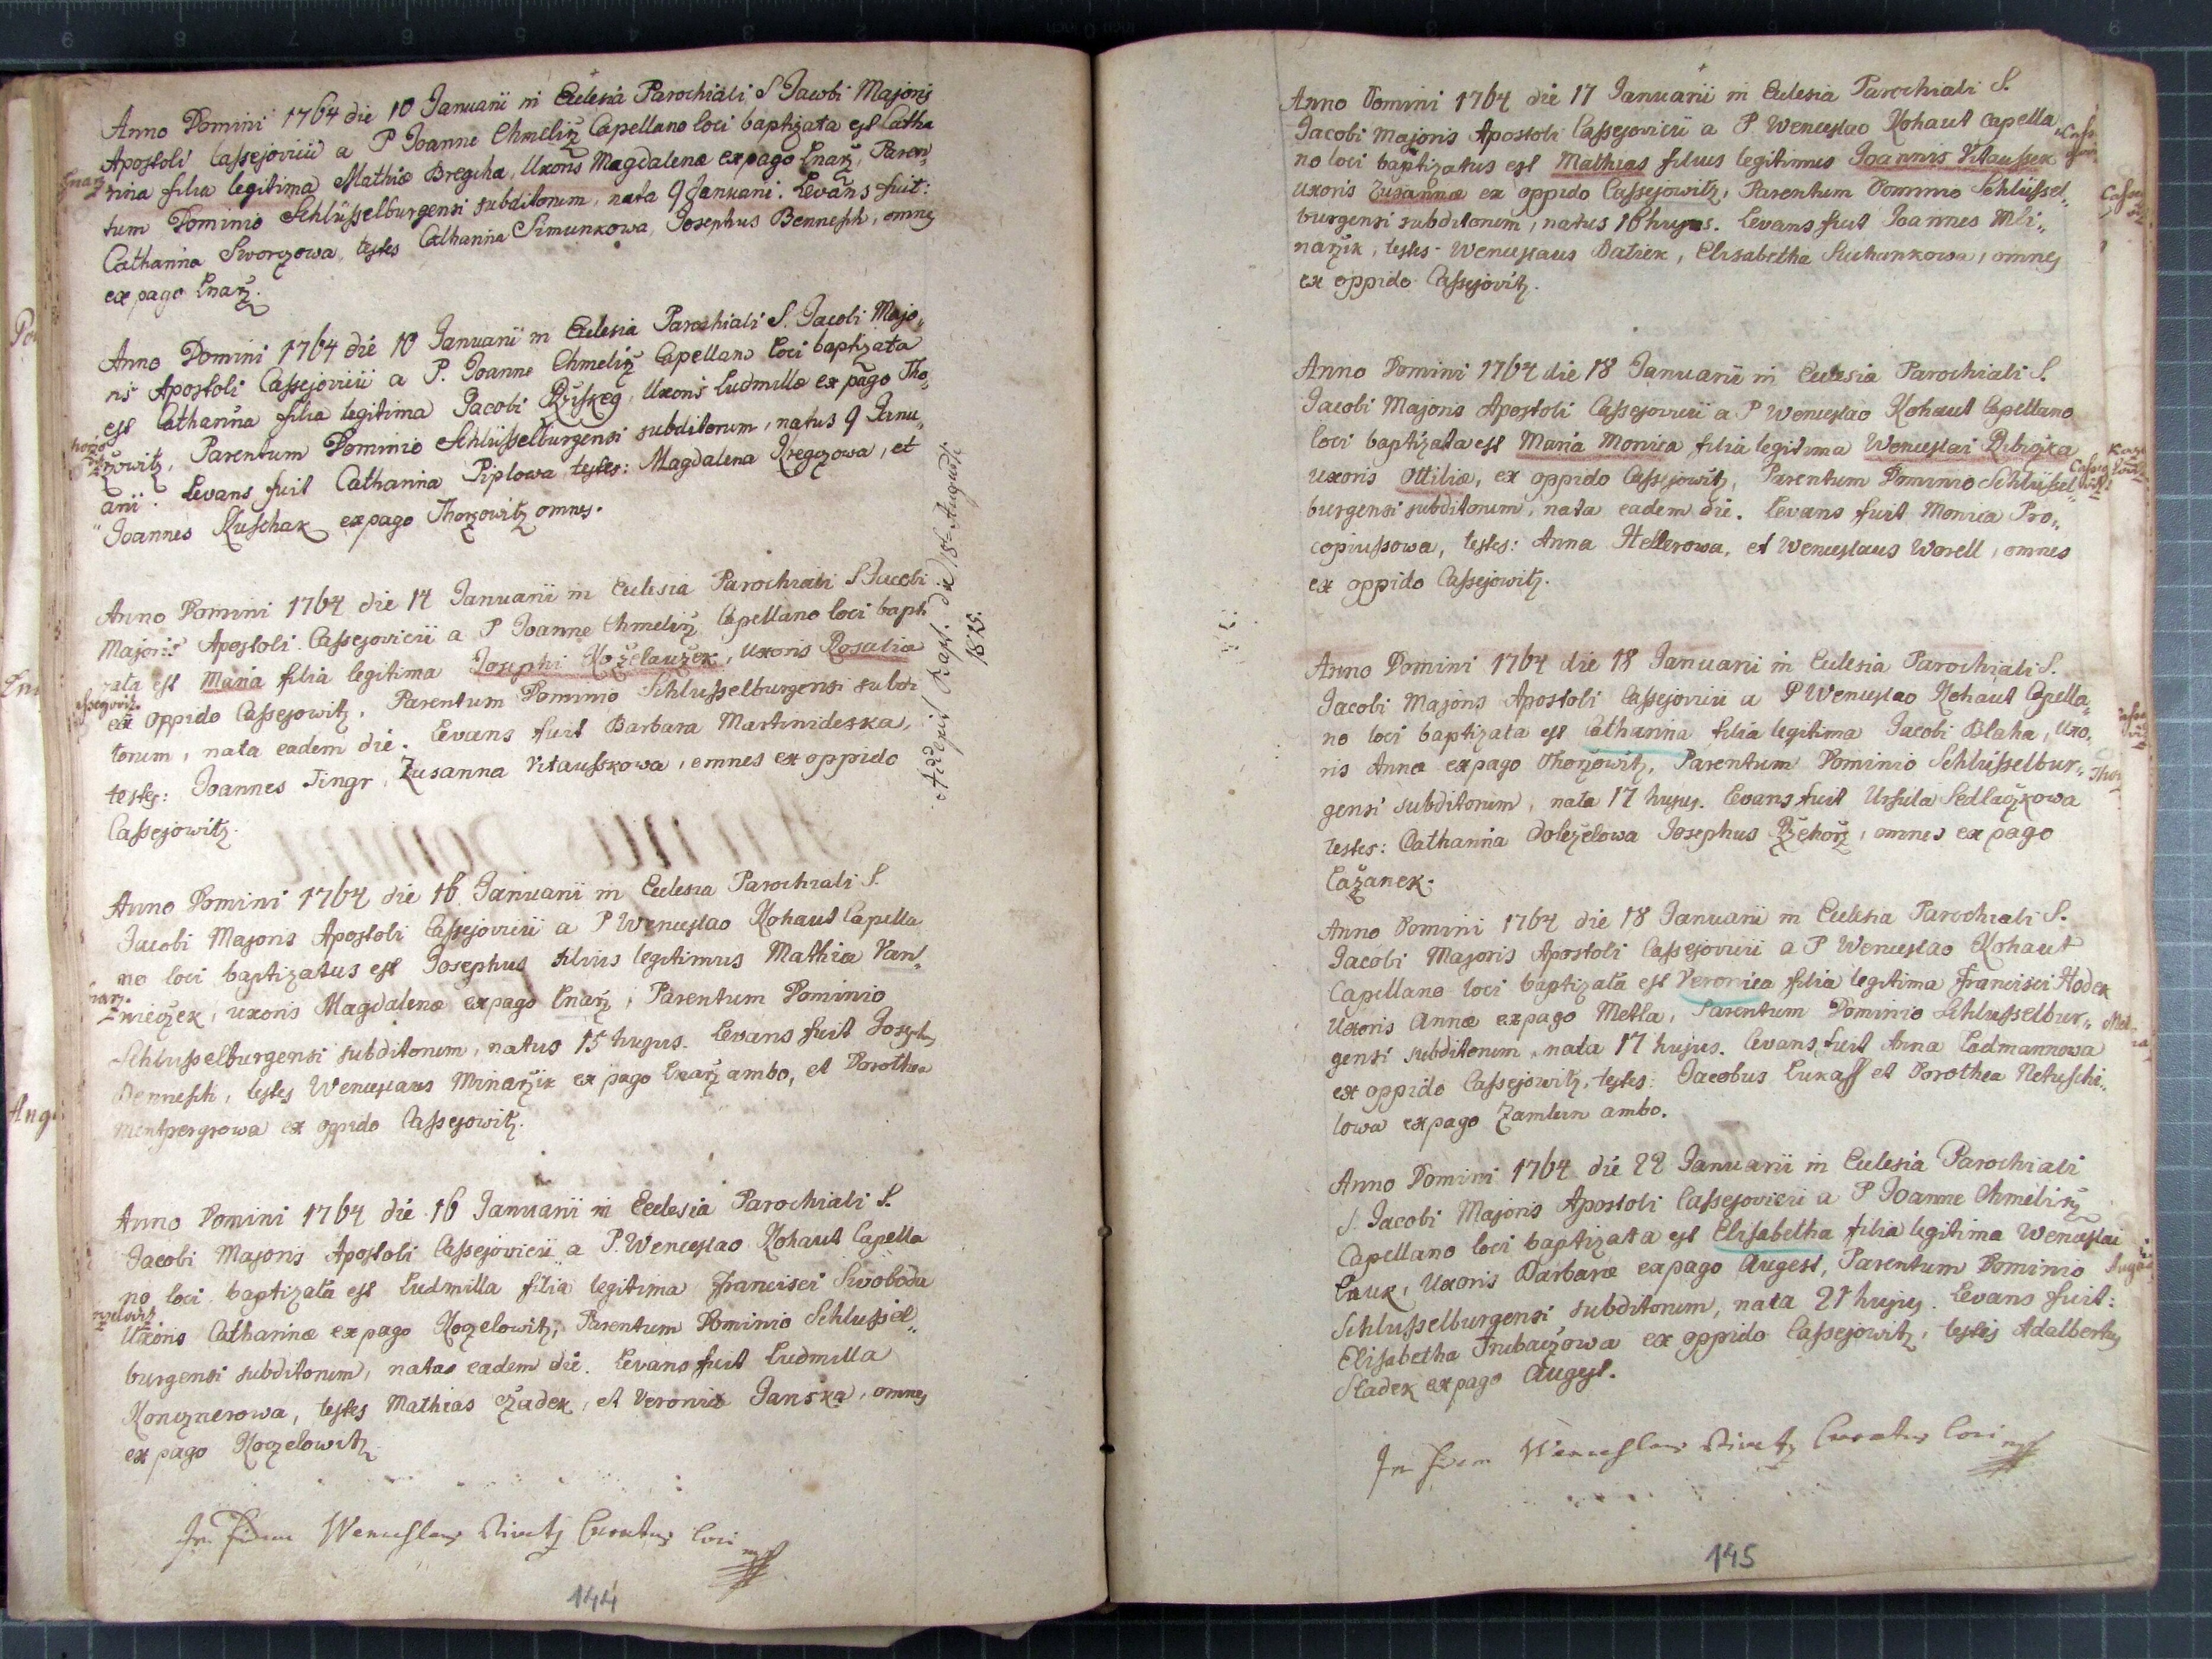 Anno Domini 1764 die 10 Januarii in Eclesiâ Parochiali S. Jacobi Majoris
Apostoli Cassejovicii a P Joanne Chmelirz Capellano loci baptizata est Catha
rina filia legitima Mathiæ Bregcha, Uxoris Magdalenæ ex pago Lnarz, Paren„
tum Dominio Schlüsselburgensi subditorum, nata 9 Januarii. Levans fuit:
Catharina Sworczowa, testes Catharina Simunkowa, Josephus Bennesch, omnes
ex pago Lnarz.
Anno Domini 1764 die 10 Januarii in Eclesia Parochiali S. Jacobi Majo„
ris Apostoli Cassejovicii a P. Joanne Chmelirz Capellano loci baptizata
est Catharina filia legitima Jacobi Uxoris Ludmillæ ex pago Tho„
rzowitz, Parentum Dominio Schlüsselburgensi subditorum, natus 9 Janu„
arii. Levans fuit Catharina Piplowa, testes: Magdalena Kregczowa, et
Joannes Kuschak ex pago Thorzowitz omnes.
Anno Domini 1764 die 14 Januarii in Eclesia Parochiali S Jacobi
Majoris Apostoli Cassejovicii a P Joanne Chmelirz Capellano loci bapti
zata est Maria filia legitima Josephi Kozelauzek, Uxoris Rosalia
ex oppido Cassejowitz, Parentum Dominio Schlusselburgensi subdi
torum, nata eadem die. Levans fuit Barbara Martinideska,
testes: Joannes Tingr, Zusanna Vitausskowa, omnes ex oppido
Cassejowitz.
Accepit Bapt. die 18 Augusti
1825.
Anno Domini 1764 die 16 Januarii in Eclesia Parochiali S.
Jacobi Majoris Apostoli Cassejovicii a P Wenceslao Kohaut Capella
no loci baptizatus est Josephus filius legitimus Mathiæ Van„
nieczek, uxoris Magdalenæ ex pago Lnarz, Parentum Dominio
Schlusselburgensi subditorum, natus 15 hujus. Levans fuit Joseph
Bennesch, testes Wenceslaus Minarzik ex pago Lnarz ambo, et Dorothea
Mentpergrowa ex oppido Cassejowitz.
Anno Domini 1764 die 16 Januarii in Ecclesia Parochiali S.
Jacobi Majoris Apostoli Cassejovicii a P. Wenceslao Kohaut Capella
no loci baptizata est Ludmilla filia legitima Francisci Swoboda
Uxoris Catharinæ ex pago Kozelowitz, Parentum Dominio Schlussel„
burgensi subditorum, natas eadem die. Levans fuit Ludmilla
Koncznerowa, testes Mathias Czadek, et Veronica Janska, omnes
ex pago Kozelowitz.
In fidem Wenceslaus Curatus loci
144
Anno Domini 1764 die 17 Januarii in Eclesia Parochiali S.
Jacobi Majoris Apostoli Cassejovicii a P. Wenceslao Kohaut Capella„
no loci baptizatus est Mathias filius legitimus Joannis Vitaussek
uxoris Zusannæ ex oppido Cassejowitz, Parentum Dominio Schlüssel„
burgensi subditorum, natus 16 hujus. Levans fuit Joannes Mli„
narzik, testes Wenceslaus Batiek, Elisabetha Suchankowa, omnes
ex oppido Cassejovitz.
Anno Domini 1764 die 18 Januarii in Eclesia Parochiali S.
Jacobi Majoris Apostoli Cassejovicii a P Wenceslao Kohaut Capellano
loci baptizata est Maria Monica filia legitima Wenceslai Ribiczka
uxoris Ottiliæ, ex oppido Cassejowitz, Parentum Dominio Schlüssel„
burgensi subditorum, nata eadem die. Levans fuit Monica Pro„
copiussowa, testes: Anna Hellerowa, et Wenceslaus Worell, omnes
ex oppido Cassejowitz.
Anno Domini 1764 die 18 Januarii in Eclesia Parochiali S.
Jacobi Majoris Apostoli Cassejovicii a P Wenceslao Kohaut Capella„
no loci baptizata est Catharina filia legitima Jacobi Blaha, Uxo„
ris Annæ ex pago Thorzowitz, Parentum Dominio Schlüsselbur„
gensi subditorum, nata 17 hujus. Levans fuit Ursula Sedlaczkowa
testes: Catharina Dolezelowa Josephus Rzehorz, omnes ex pago
Lazanek.
Anno Domini 1764 die 18 Januarii in Eclesia Parochiali S.
Jacobi Majoris Apostoli Cassejovicii a P Wenceslao Kohaut
Capellano loci baptizata est Veronica filia legitima Francisci Hodek
Uxoris Annæ ex pago Metla, Parentum Dominio Schlusselbur„
gensi subditorum, nata 17 hujus. Levans fuit Anna Lodmannowa
ex oppido Cassejowitz, testes: Jacobus Lukass et Dorothea Netuschi„
lowa ex pago Zamlin ambo.
Anno Domini 1764 die 22 Januarii in Eclesiâ Parochiali
S. Jacobi Majoris Apostoli Cassejovicii a P Joanne Chmelirz
Capellano loci baptizata est Elisabetha filia legitima Wenceslai
Cauk, Uxoris Barbaræ ex pago Augest, Parentum Dominio
Schlusselburgensi subditorum, nata 21 hujus. Levans fuit:
Elisabetha Trubaczowa ex oppido Cassejowitz, testes Adalbertus
Sladek ex pago Augest.
In fidem Wenceslaus Curatus loci
145